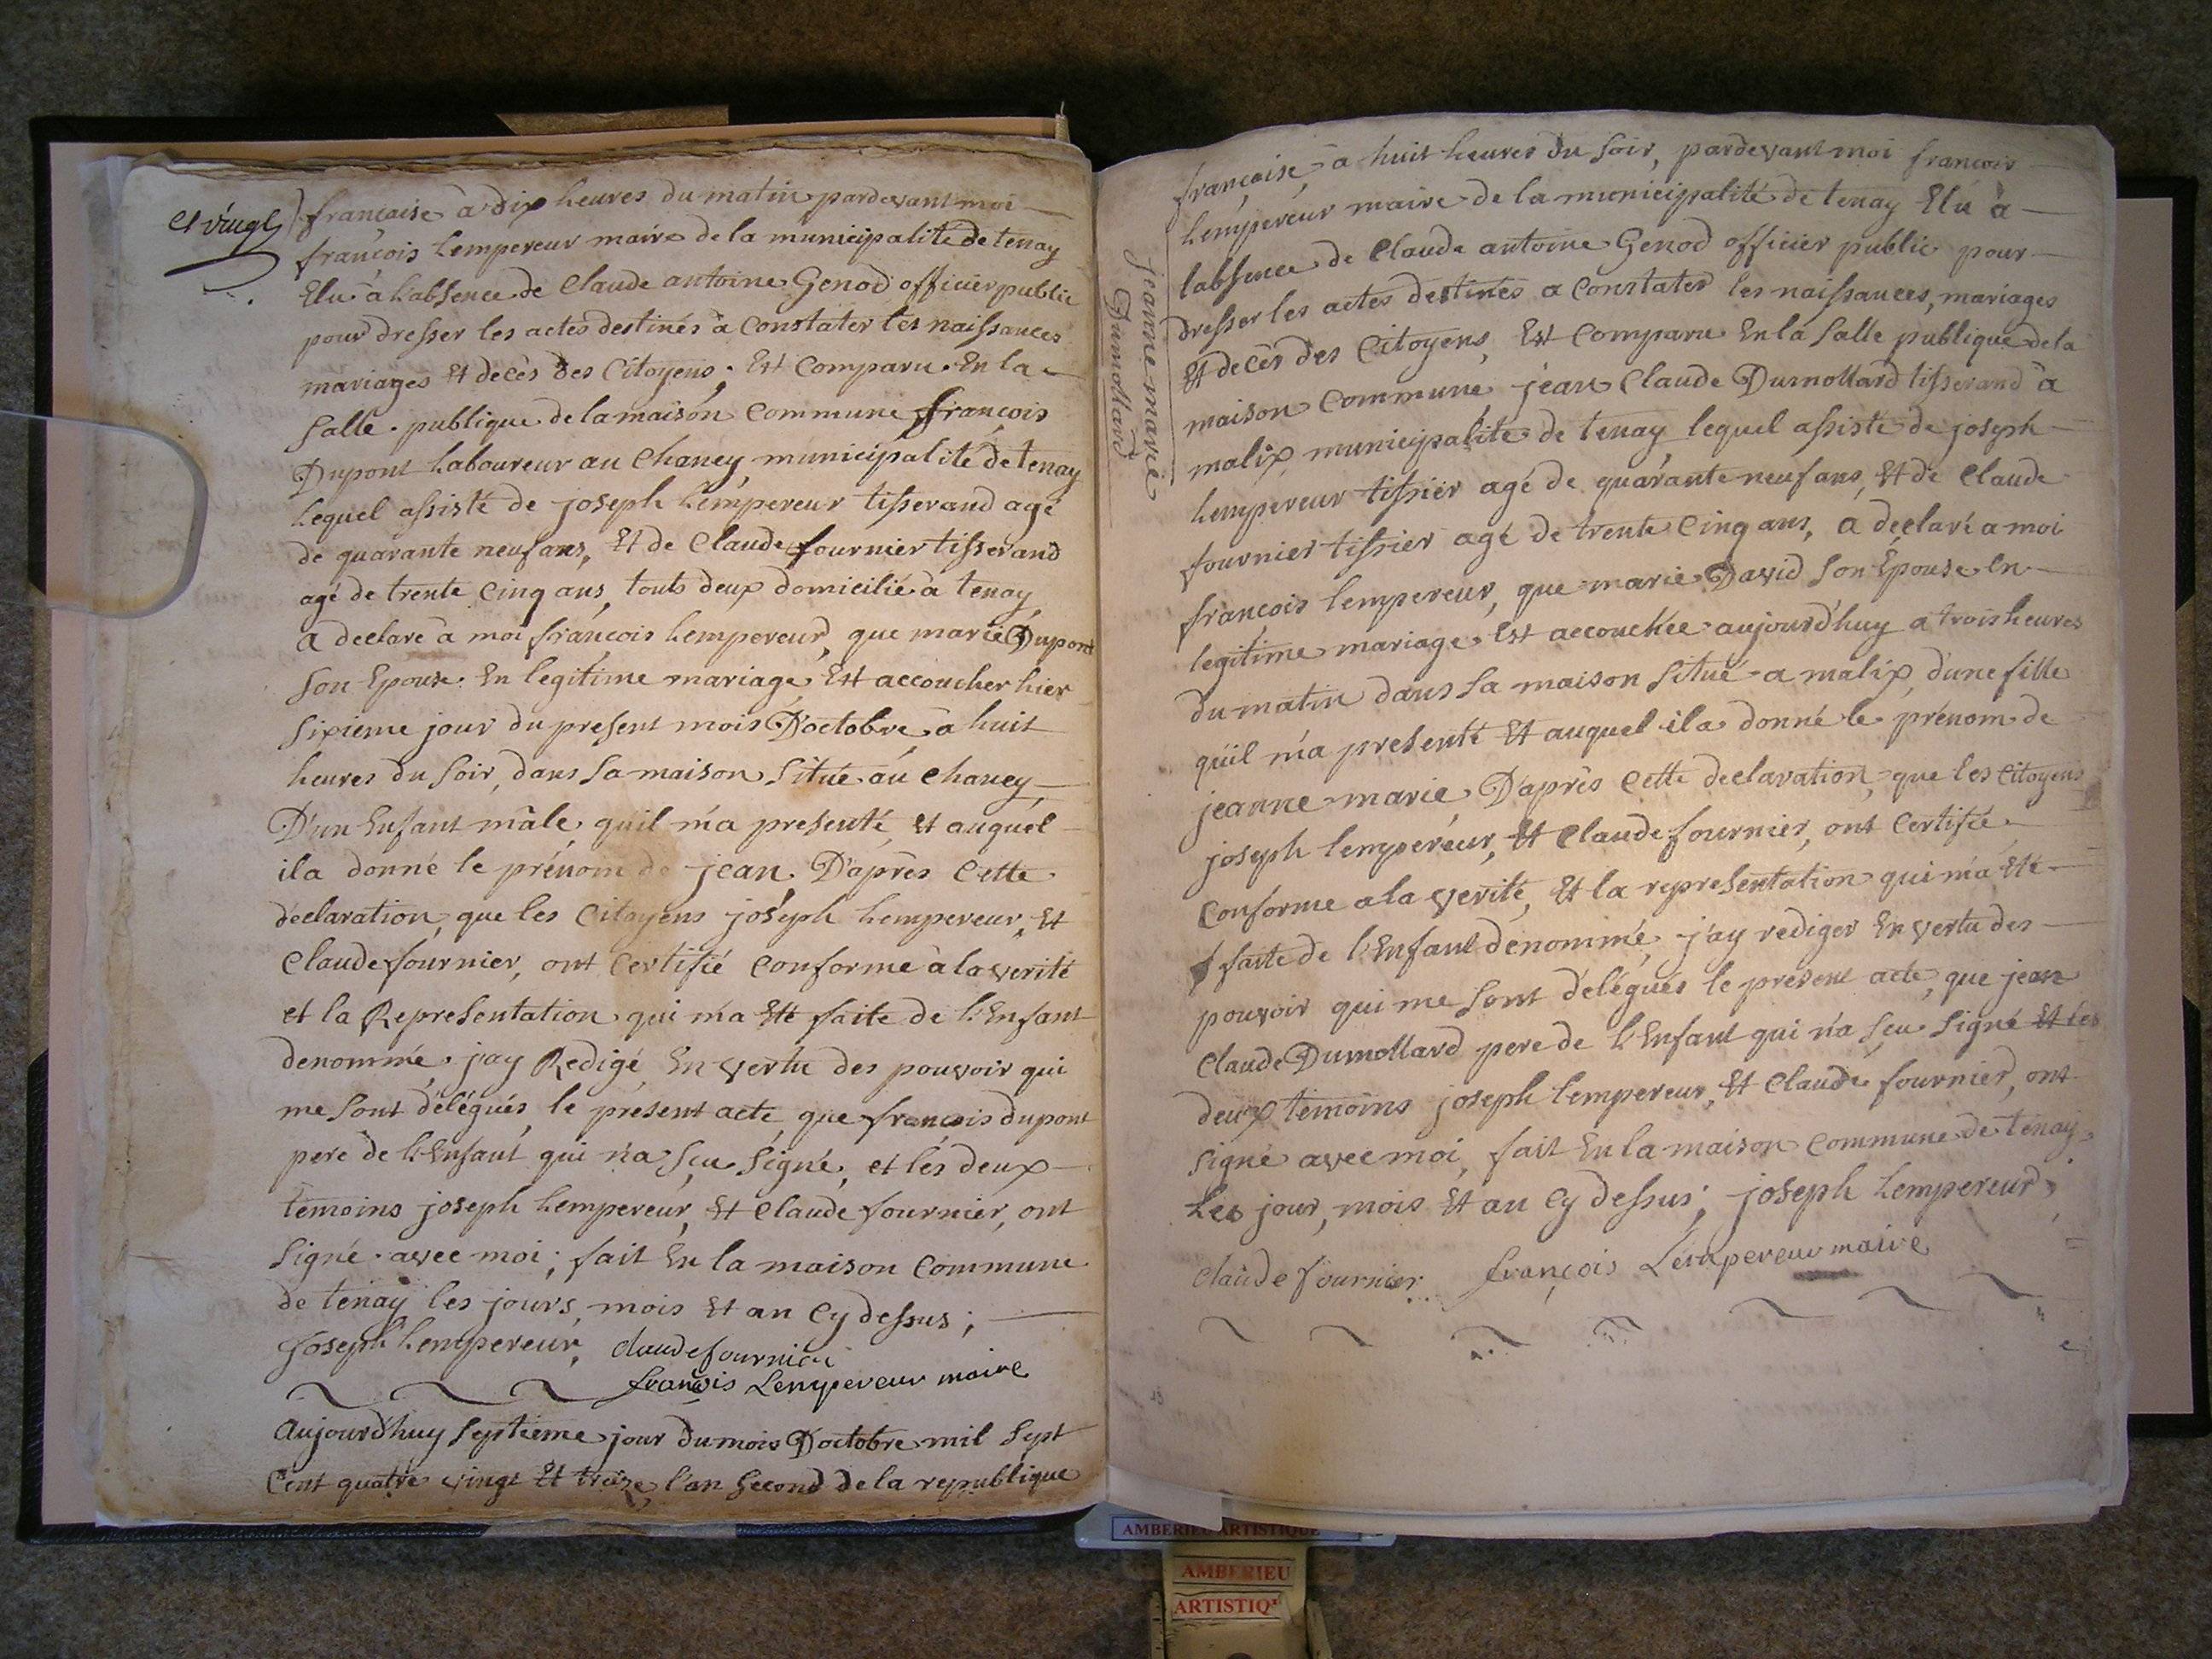 et vingt
française à dix heures du matin pardevant moi
françois Lempereur maire de la municipalité de tenay
Elu à L'absence de Claude antoine Genod officier public
pour dresser les actes destinés à Constater les naissances
mariages Et décès des Citoyens. Est Comparu. En la
Salle. publique de la maison Commune françois
Dupont Laboureur au Chaney, municipalité de tenay
Lequel assisté de joseph Lempereur tisserand agé
de quarante neuf ans, Et de Claude fournier tisserand
agé de trente Cinq ans, touts deux domicilié à tenay,
a declaré à moi françois Lempereur, que marie Dupont
Son Epouse. En legitime mariage, Est accoucher hier
Sixieme jour du present mois D'octobre, à huit
heures du Soir, dans Sa maison Situé au Chaney
D'un Enfant mâle, quil m'a presenté, et auquel
il a donné le prénom de jean. D'après Cette
déclaration, que les Citoyens joséph Lempereur, Et
Claude fournier, ont Certifié Conforme à la verité
et la Representation qui m'a Eté faite de L'Enfant
denommé, j'ay Redigé En vertu des pouvoir qui
me sont délégués, le présent acte, que françois dupont
pere de L'Enfant qui n'a sçu signé, et lés deux
témoins joseph Lempereur, Et Claude fournier, ont
Signé. avec moi; fait En la maison Commune
de tenay les jours, mois Et an Cy dessus;
Joseph Lempereur, claude fournier
françois Lempereur maire
aujourd'huy Septieme jour du mois D'octobre mil Sept
Cent quatre vingt Et treize, l'an Second de la republique
jeanne marie
Dumollard
française, à huit heures du Soir, pardevant moi françois
Lempereur maire de la municipalité de tenay Elu à
labsence de Claude antoine Genod officier public pour
dresser les actes destinés a Constater les naissances, mariages
Et decès des Citoyens, Est Comparu En la Salle publique de la
maison Commune jean Claude Dumollard tisserand à
malix municipalité de tenay, lequel assisté de joseph
Lempereur tissier agé de quarante neuf ans, Et de Claude
fournier tissier agé de trente Cinq ans, a déclaré a moi
francois lempereur, que marie David Son Epouse En
legitime mariage Est accouchée aujourd'huy a trois heures
du matin dans Sa maison Situé a malix, d'une fille
qu'il m'a presenté Et auquel il a donné le prénom de
jeanne marie, D'après Cette declaration, que les Citoyens
joseph lempereur, Et Claude fournier, ont Certifié
Conforme a la verité, Et la representation qui m'a Eté
faite de l'Enfant denommé, j'ay rediger En vertu des
pouvoir qui me Sont délégués le présent acte, que jean
Claude Dumollard pere de L'Enfant qui n'a sçu Signé Et les
deux témoins joseph lempereur, Et Claude fournier, ont
Signé avec moi, fait En la maison Commune de tenay,
Les jour, mois Et an Cy dessus; joseph Lempereur,
claude fournier. françois Lempereur maire
AMBERIEU ARTISTIQUE
AMBERIEU
ARTISTIQ